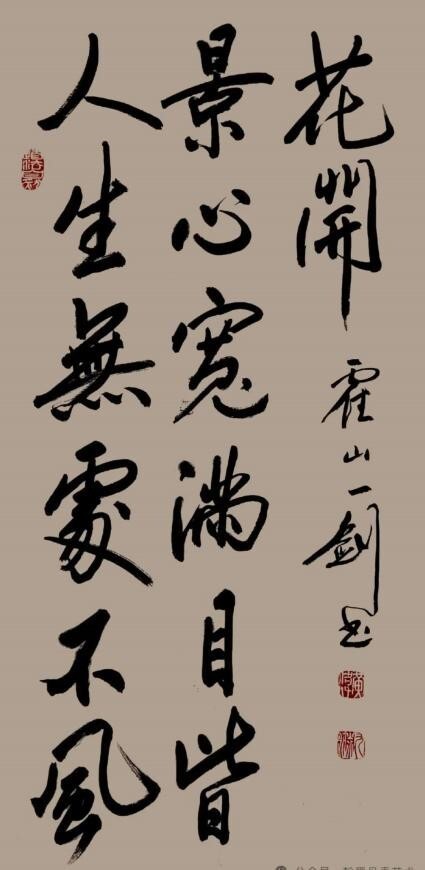 人生無處不風
景心寬滿目皆
花開
霍山一劍書